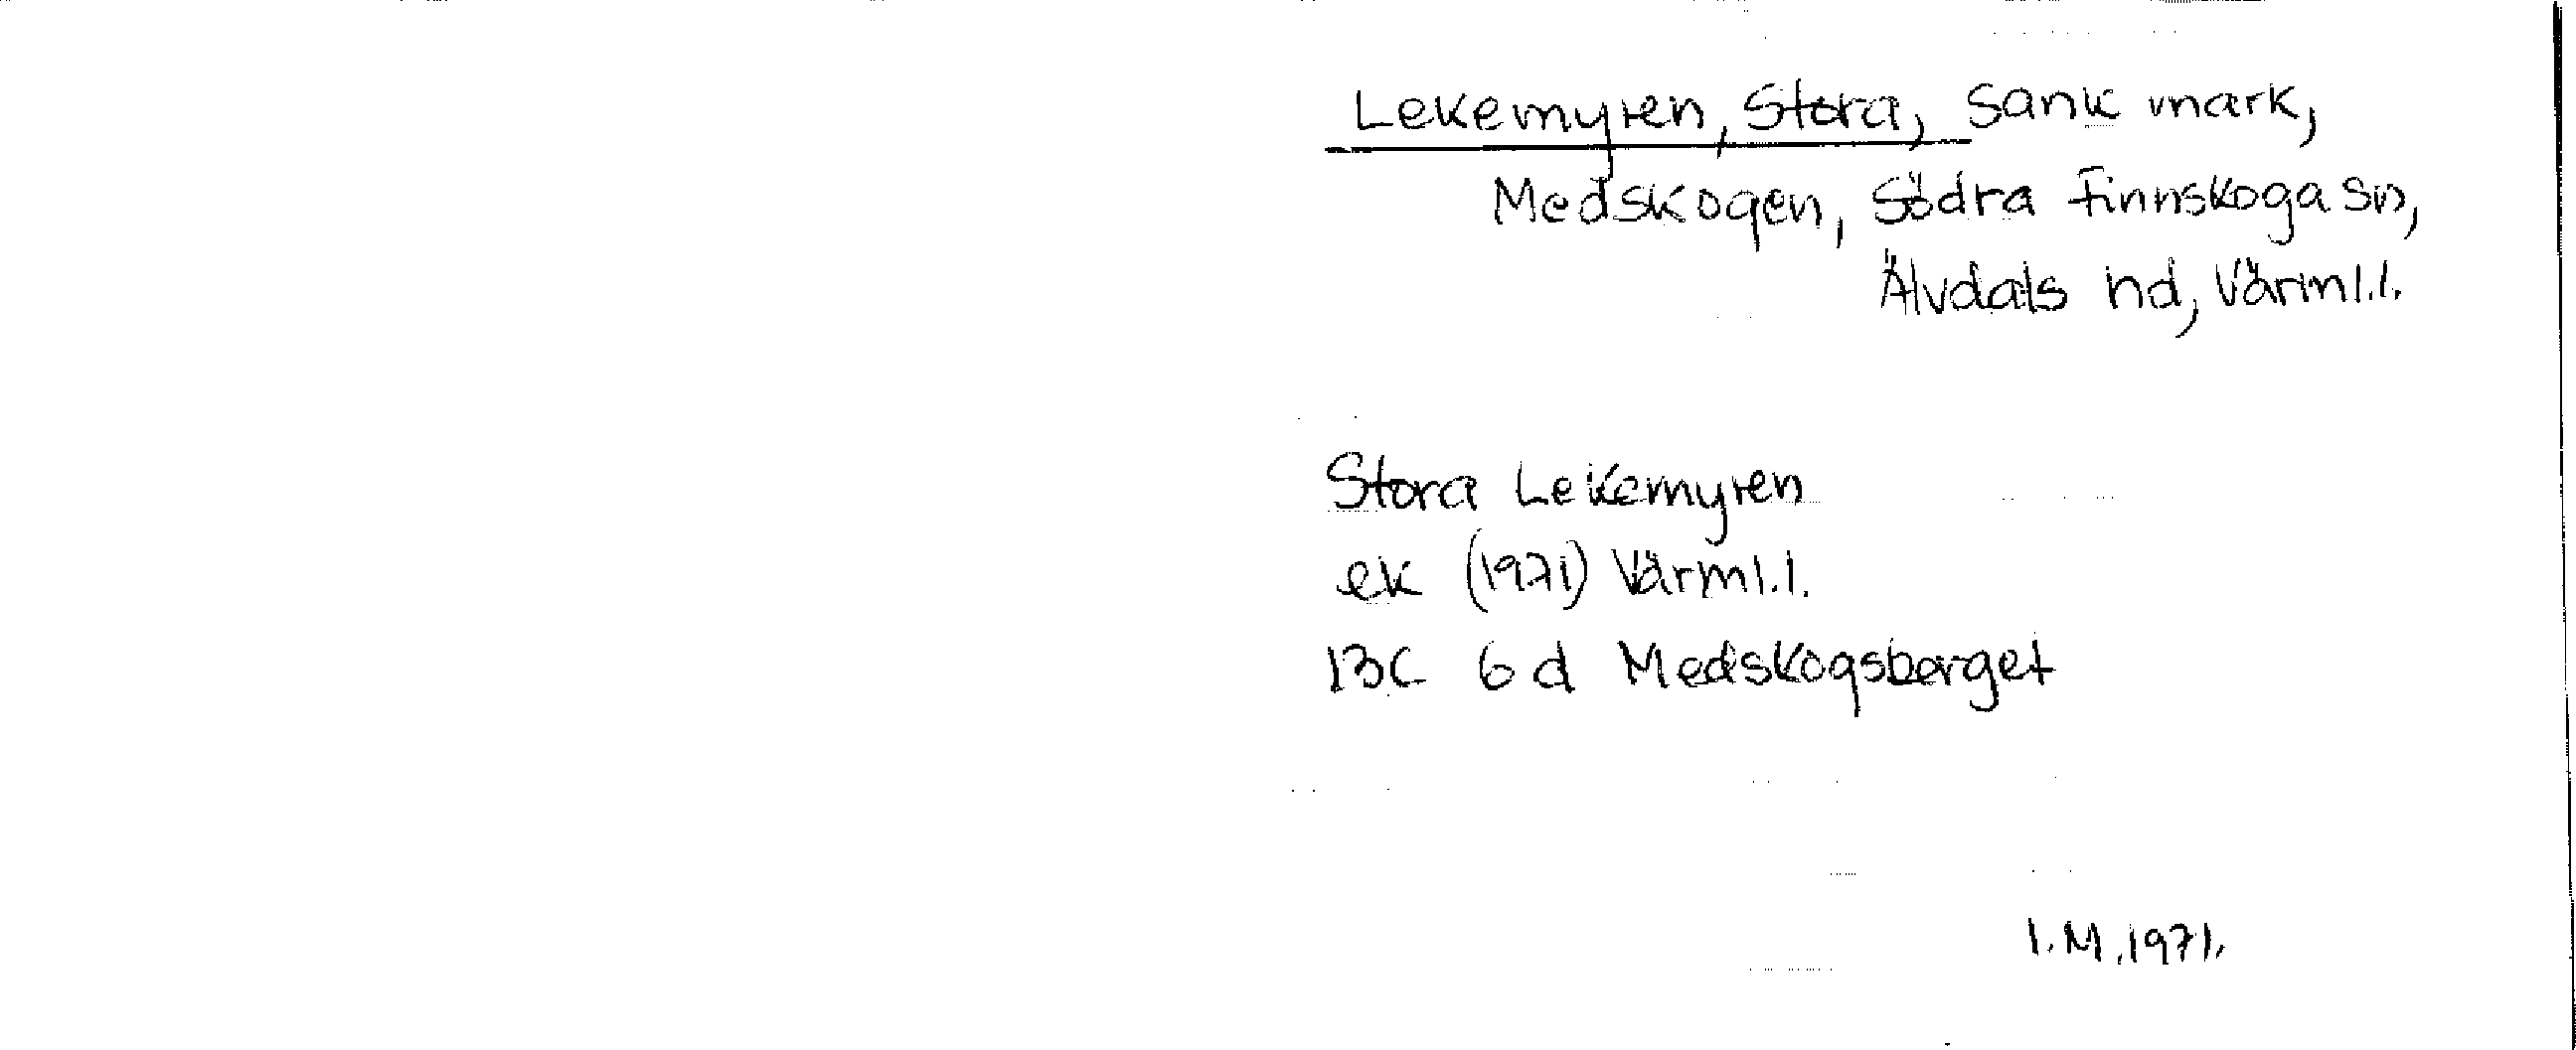 Lekemyren, Stora, sank mark,
Medskogen, Södra Finnskoga sn,
Älvdals hd, Värml.l.
Stora Lekemyren
ek (1971) Värml.l.
13C 6d Medskogsberget
I.M.1971.